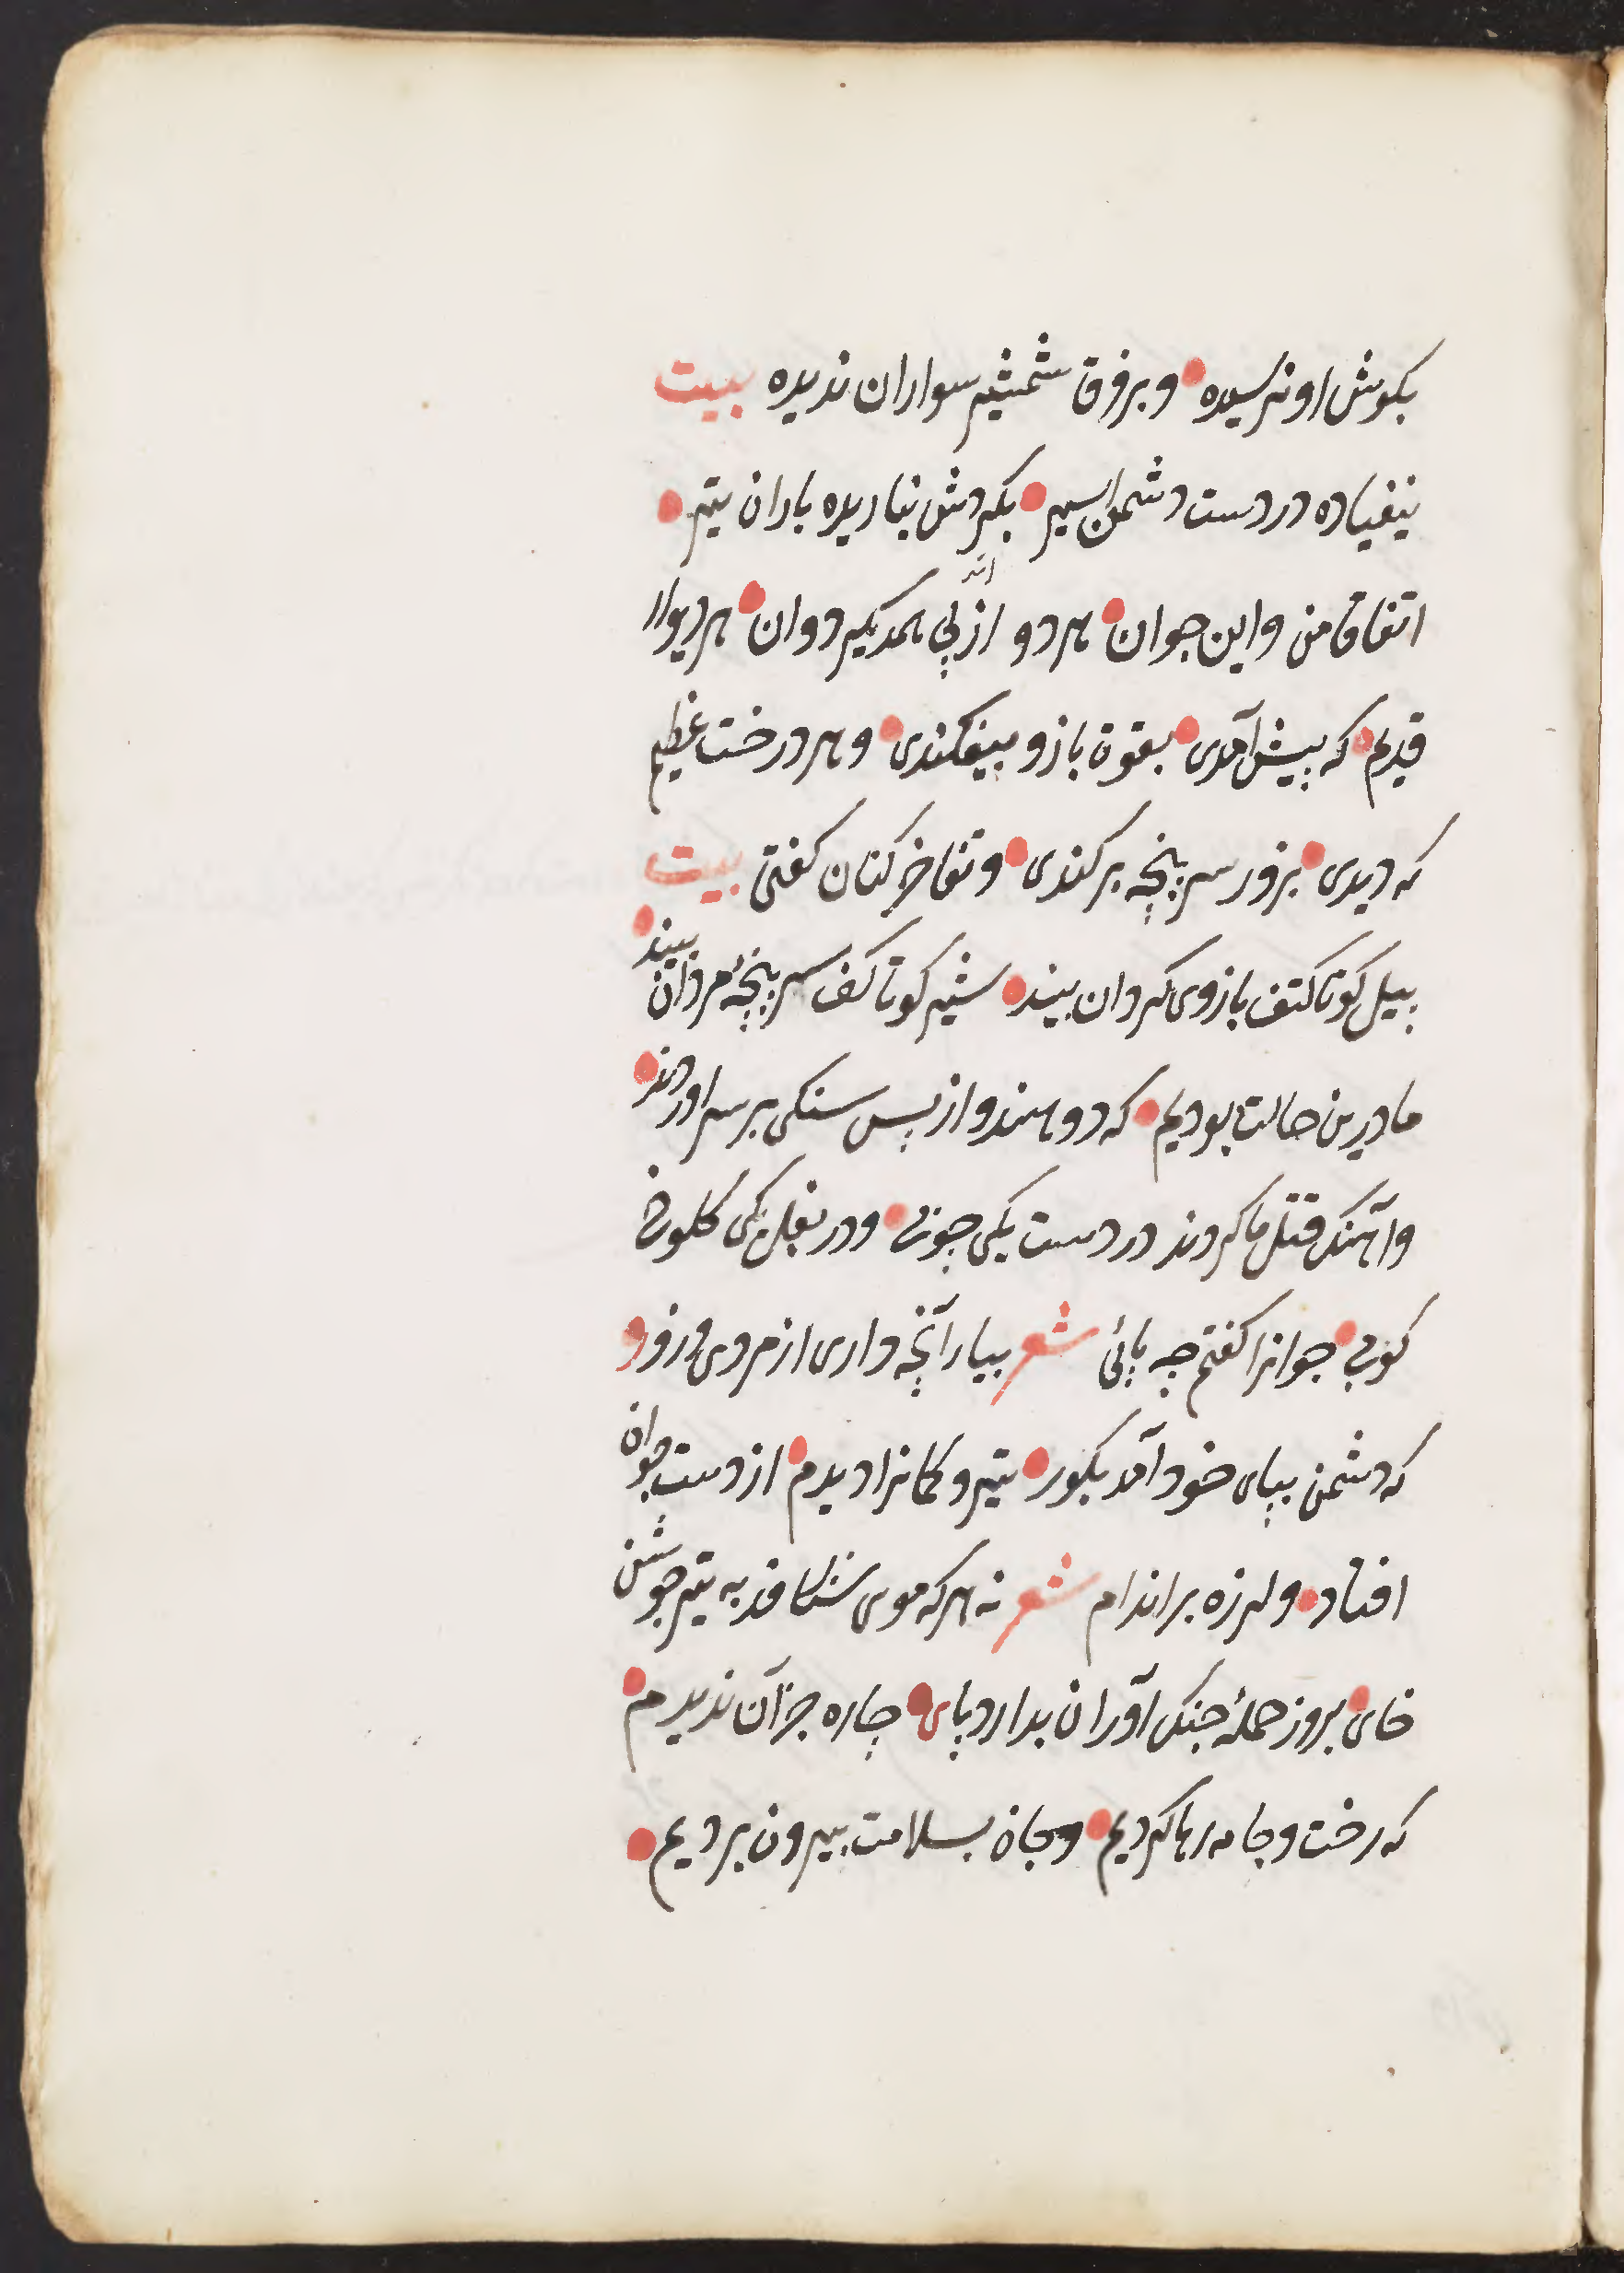 بکوش او نرسیده و برفرق شمشیر سواران ندیده بیت
نیفتاده در دست دشمن اسیر بکردش نباریده باران تیر
اتفاق من واین جوان هر دو از پی همدیکر دوان هر دیوار
قدیم که پیش آمدی بقوة بازو بیفکندی و هر درخت عظیم
که دیدی بزور سرپنجه برکندی و تفاخر کنان کفتی بیت
پیل کو تا کتف بازوی کردان بیند شیر کو تا کف سرپنجۀ مردان بیند
ما درین حالت بودیم که دو هندو از پس سنکی برسر اوردند
وآهنک قتل ما کردند در دست یکی چوبی و در بغل یکی کلوخ
کوبی جوانرا کفتم چه پائی شعر بیار آنچه داری از مردی و زور
که دشمن بپای خود آمد بکور تیر و کمانرا دیدم از دست جوان
افتاد و لرزه بر اندام شعر نه هرکه موی شکافد به تیر جوشن
خای بروز حملۀ جنک اوران بدارد پای چاره جز آن ندیدم
که رخت و جامه رها کردیم و جان بسلامت بیرون بردیم